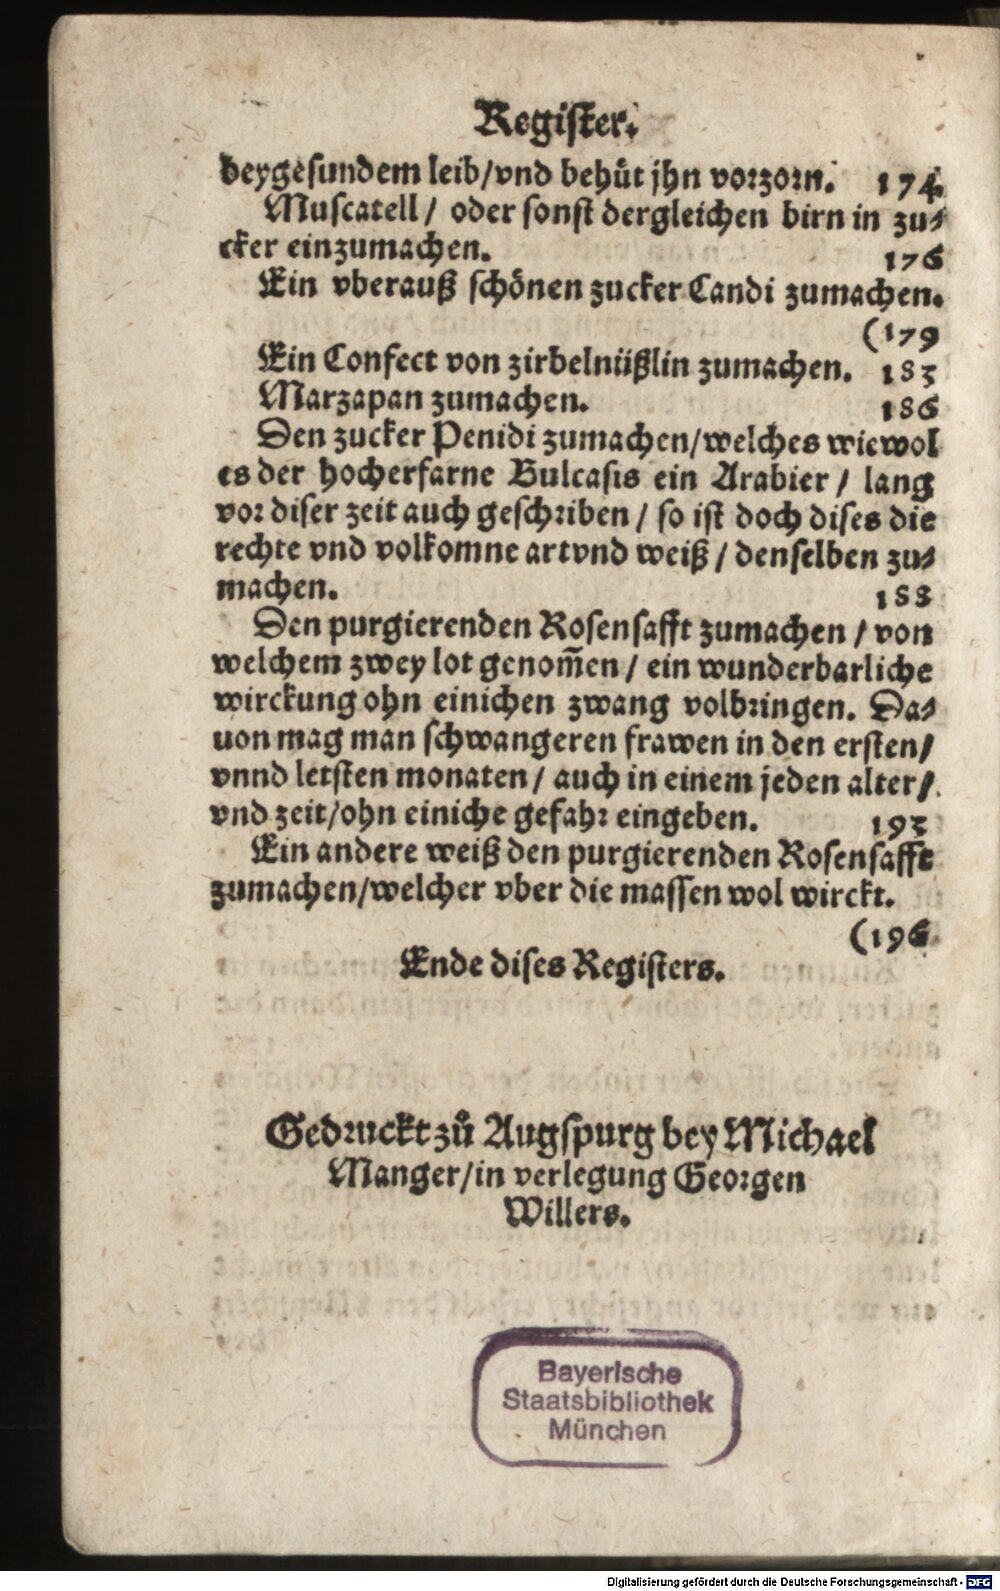 Register.
beygesundem leib/vnd behuͤt jhn vorzorn. 174
Muscatell / oder sonst dergleichen birn in zu⸗
cker einzumachen. 176
Ein vberauß schoͤnen zucker Candi zumachen.
(179
Ein Confect von zirbelnuͤßlin zumachen. 183
Marzapan zumachen. 186
Den zucker Penidi zumachen/welches wiewol
es der hocherfarne Bulcasis ein Arabier / lang
vor diser zeit auch geschriben / so ist doch dises die
rechte vnd volkomne artvnd weiß / denselben zu⸗
machen. 188
Den purgierenden Rosensafft zumachen / von
welchem zwey lot genom̅en / ein wunderbarliche
wirckung ohn einichen zwang volbringen. Da⸗
uon mag man schwangeren frawen in den ersten/
vnnd letsten monaten / auch in einem jeden alter/
vnd zeit/ohn einiche gefahr eingeben. 193
Ein andere weiß den purgierenden Rosensafft
zumachen/welcher vber die massen wol wirckt.
(196
Ende dises Registers.
Gedruckt zuͦ Augspurg bey Michael
Manger/in verlegung Georgen
Willers.
Bayerische
Staatsbibliothek
München
Digitalisierung gefördert durch die Deutsche Forschungsgemeinschaft - DFG